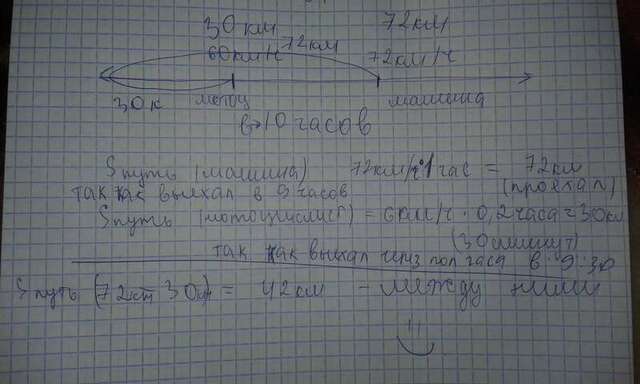 30км 72км
60км/ч 72км 72км/ч
30к мотоц машина
в 10 часов
S путь (машина) 72км/ч·1час = 72км
так как выехал в 9 часов (проехала)
S путь (мотоциклист) = 60км/ч · 0,2часа = 30км
(30 минут)
так как выехал через пол часа в 9:30
S путь (72км - 30) = 42км - между ними